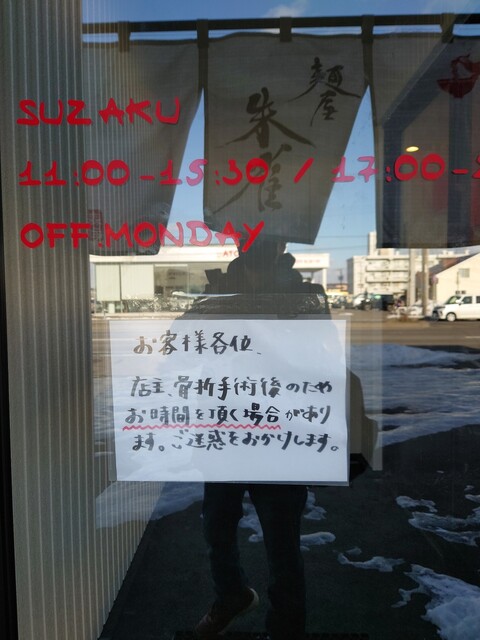 麺屋
朱雀
SUZAKU
11:00-15:30 / 17:00-
OFF:MONDAY
お客様各位、
店主、骨折手術後のため
お時間を頂く場合があり
ます。ご迷惑をおかけします。